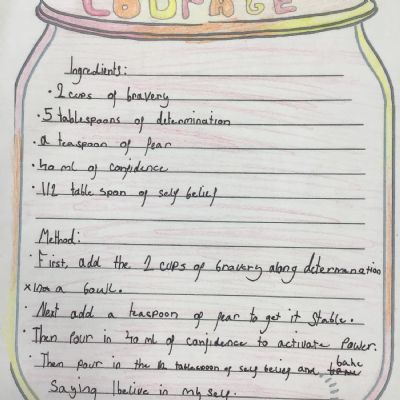 COURAGE
Ingredients:
• 2 cups of bravery
• 5 tablespoons of determination
• a teaspoon of fear
• 40 ml of confidence
• 1/2 table spon of self belief
Method:
• First, add the 2 cups of bravery along determanation
into a bowl.
• Next add a teaspoon of fear to get it stable.
• Then pour in 40 ml of confidence to activate Power.
• Then pour in the 1/2 tablespoon of self belief and bake
Saying I believe in my self.